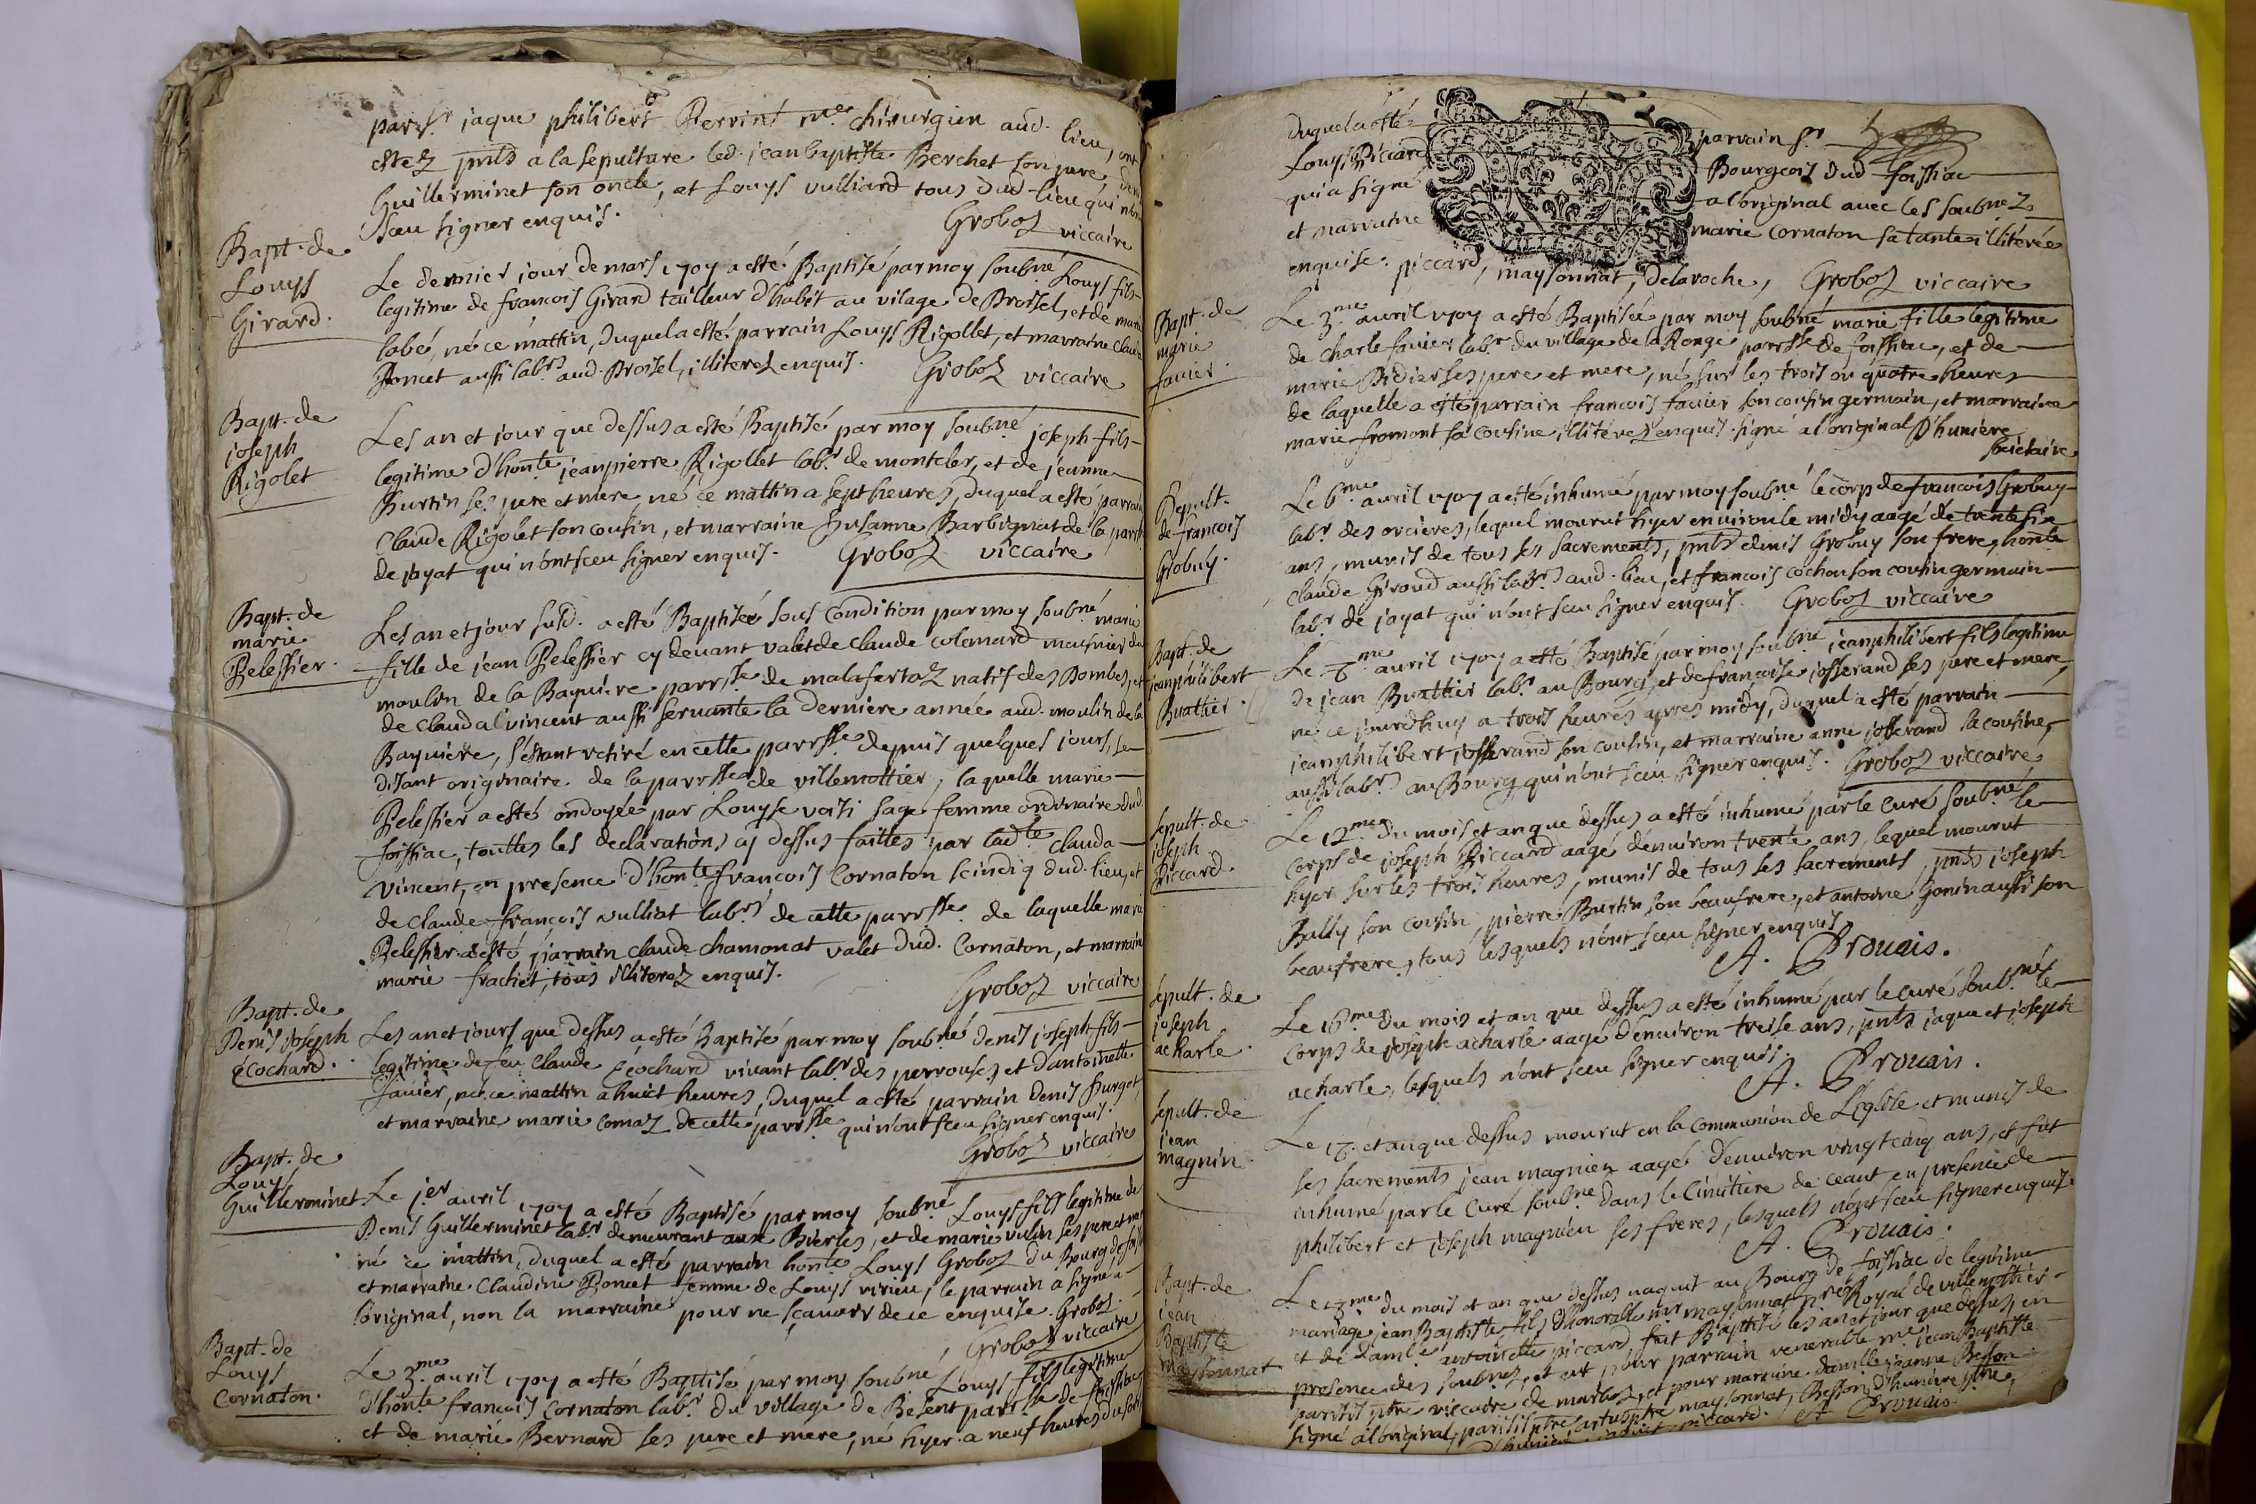 par Sr jaque philibert Perrint me chirurgien aud. lieu, ont
estez pnts a la sepulture led. jean baptiste Berchet son pere,
Guillerminet son oncle, et Louys vulliard tous dud. lieu qui n'ont
sceu signer enquis.
Groboz viccaire
Bapt. de
Louys
Girard.
Le dernier jour de mars 1707 a esté Baptisé par moy soubné Louys fils
legitime de francois Girard tailleur d'habit au vilage de Broisel, et de marie
lobé, né cé mattin, duquel a esté parrain Louys Rigollet, et marraine
Poncet aussi labrs aud. Broisel, illiterez enquis.
Groboz viccaire
Bapt. de
joseph
Rigolet
Les an et jour que dessus a esté Baptisé par moy soubné joseph fils
legitime d'honte jeanpierre Rigollet labr de montcler, et de jeanne
Burtin ses pere et mere né ce mattin a sept heures, duquel a esté parrain
Claude Rigolet son cousin, et marraine Susanne Barbignat de la parsse
de jayat qui n'ont sceu signer enquis.
Groboz viccaire
Bapt. de
marie
Pelessier.
Les an et jour susd. a esté Baptiséé sous Condition par moy soubné marie
fille de jean Pelessier cy devant valet de claude colomard mousnier du
moulin de la Bayviere parrsse de malafertaz natif des Dombes, et
de clauda vincent aussi servante la derniere année aud. moulin de la
Bayviere, s'estant retiré en cette parrsse depuis quelques jours, se
disant originaire de la parrsse de villemottier, laquelle marie
Pelessier a esté ondoyée par Louyse voisi sage femme ordinaire dud.
foissiac, touttes les declarations cy dessus faittes par ladte clauda
vincent, en presence d'honte francois Cornaton scindiq dud. lieu, et
de claude francois vulliat labrs de cette parrsse. de laquelle marie
Pelessier a esté parrain claude chamonat valet dud. Cornaton, et marraine
marie frachet, tous illiterez enquis.
Groboz viccaire
Bapt. de
Denis joseph
Ecochard.
Les an et jours que dessus a esté Baptisé par moy soubné denis joseph fils
legitime de feu Claude Ecochard vivant labr des perrouses, et d'antoinette
favier, né ce mattin a huict heures, duquel a esté parrain denis Burgot,
et marraine marie comaz de cette parrsse qui n'ont sceu signer enquis.
Groboz viccaire
Bapt. de
Louys
Guillerminet.
Le jer avril 1707 a esté Baptisé par moy soubné Louys fils legitime de
Denis Guillerminet labr demeurant aux Bierles, et de marie vulin ses pere et mere
né ce mattin, duquel a esté parrain honte Louys Groboz du Bourg de
et marraine Claudine Poncet femme de Louys virieu, le parrain a signé a
l'original, non la marraine pour ne sçavoir de ce enquise. Groboz.
Groboz viccaire
Bapt. de
Louys
Cornaton.
Le 3me avril 1707 a esté Baptisé par moy soubné Louys fils legitime
d'honte francois Cornaton labr du village de Besent parrsse de foissiac
et de marie Bernard ses pere et mere, né hyer a neuf heures du soir
duquel a esté parrain Sr
Louys Piccard Bourgeois dud foissiac
qui a signé a l'original avec les soubnez
et marraine marie Cornaton sa tante illiterée
enquise. piccard, maysonnat, Delaroche, Groboz viccaire
Bapt. de
marie
favier.
Le 3me avril 1707 a esté Baptisée par moy soubné marie fille legitime
de charle favier labr du village de la Ronge parrsse de foissiac, et de
marie Didier ses pere et mere, né sur les trois ou quatre heures
de laquelle a esté parrain francois favier son cousin germain, et marraine
marie fromont sa cousine illitérez enquis. signé a l'original D'huniere
societaire
Sepult.
de francois
Grobuy.
Le 6me avril 1707 a esté inhumé par moy soubné le corp de francois Grobuy
labr des orcieres, lequel mourut hyer environ le midy aagé de trente six
ans, munis de tous ses sacrements, pnts denis Grobuy son frere, honte
claude Giroud aussi labrs aud. lieu, et francois cochon son cousin germain
labr de jayat qui n'ont sceu signer enquis. Groboz viccaire
Bapt. de
jeanphilibert
Buathier.
Le 7me avril 1707 a esté Baptisé par moy soubné jeanphilibert fils legitime
de jean Buathier labr au Bourg, et de francoise josserand ses pere et mere,
né ce jourdhuy a trois heures apres midy, duquel a esté parrain
jeanphilibert josserand son cousin, et marraine anne josserand sa cousine,
aussi labrs au Bourg qui n'ont sceu signer enquis. Groboz viccaire
sepult. de
joseph
Piccard.
Le 12me du mois et an que dessus a esté inhumé par le curé soubné le
corps de joseph Piccard aagé d'environ trente ans, lequel mourut
hyer sur les trois heures, munis de tous les sacrements, pnts joseph
Bully son cousin, pierre Burtin son beaufrere, et antoine Gonin aussi son
beaufrere, tous lesquels n'ont sceu signer enquis.
A. Prouais.
sepult. de
joseph
acharle.
Le 16me du mois et an que dessus a esté inhumé par le curé soubné le
corps de joseph acharle aagé d'environ treise ans, pnts jaque et joseph
acharle, lesquels n'ont sceu signer enquis.
A. Prouais.
sepult. de
jean
magnin.
Le 17. et an que dessus mourut en la communion de L'eglise et munis de
ses sacrements jean magnien aagé d'environ vingt cinq ans, et fut
inhumé par le Curé soubné dans le Cimitiere de ceans en presence de
philibert et joseph magnien ses freres, lesquels n'ont sceu signer enquis.
A. Prouais.
Bapt. de
jean
Baptiste
maysonnat
Le 17me du mois et an que dessus naquit au Bourg de foissiac de legitime
mariage jean Baptiste fils d'honorable mr maysonnat Royal de villemottier
et de damlle antoinette piccard, fut Baptisé les an et jour que dessus, en
presence des soubnez, et eut pour parrain venerable mre jean Baptiste
parisit ptre viccaire de marboz, et pour marraine damlle jeanne Besson.
signé a l'original, parisit ptre, maysonnat, Besson, d'huniere ptre,
piccard. A Prouais.